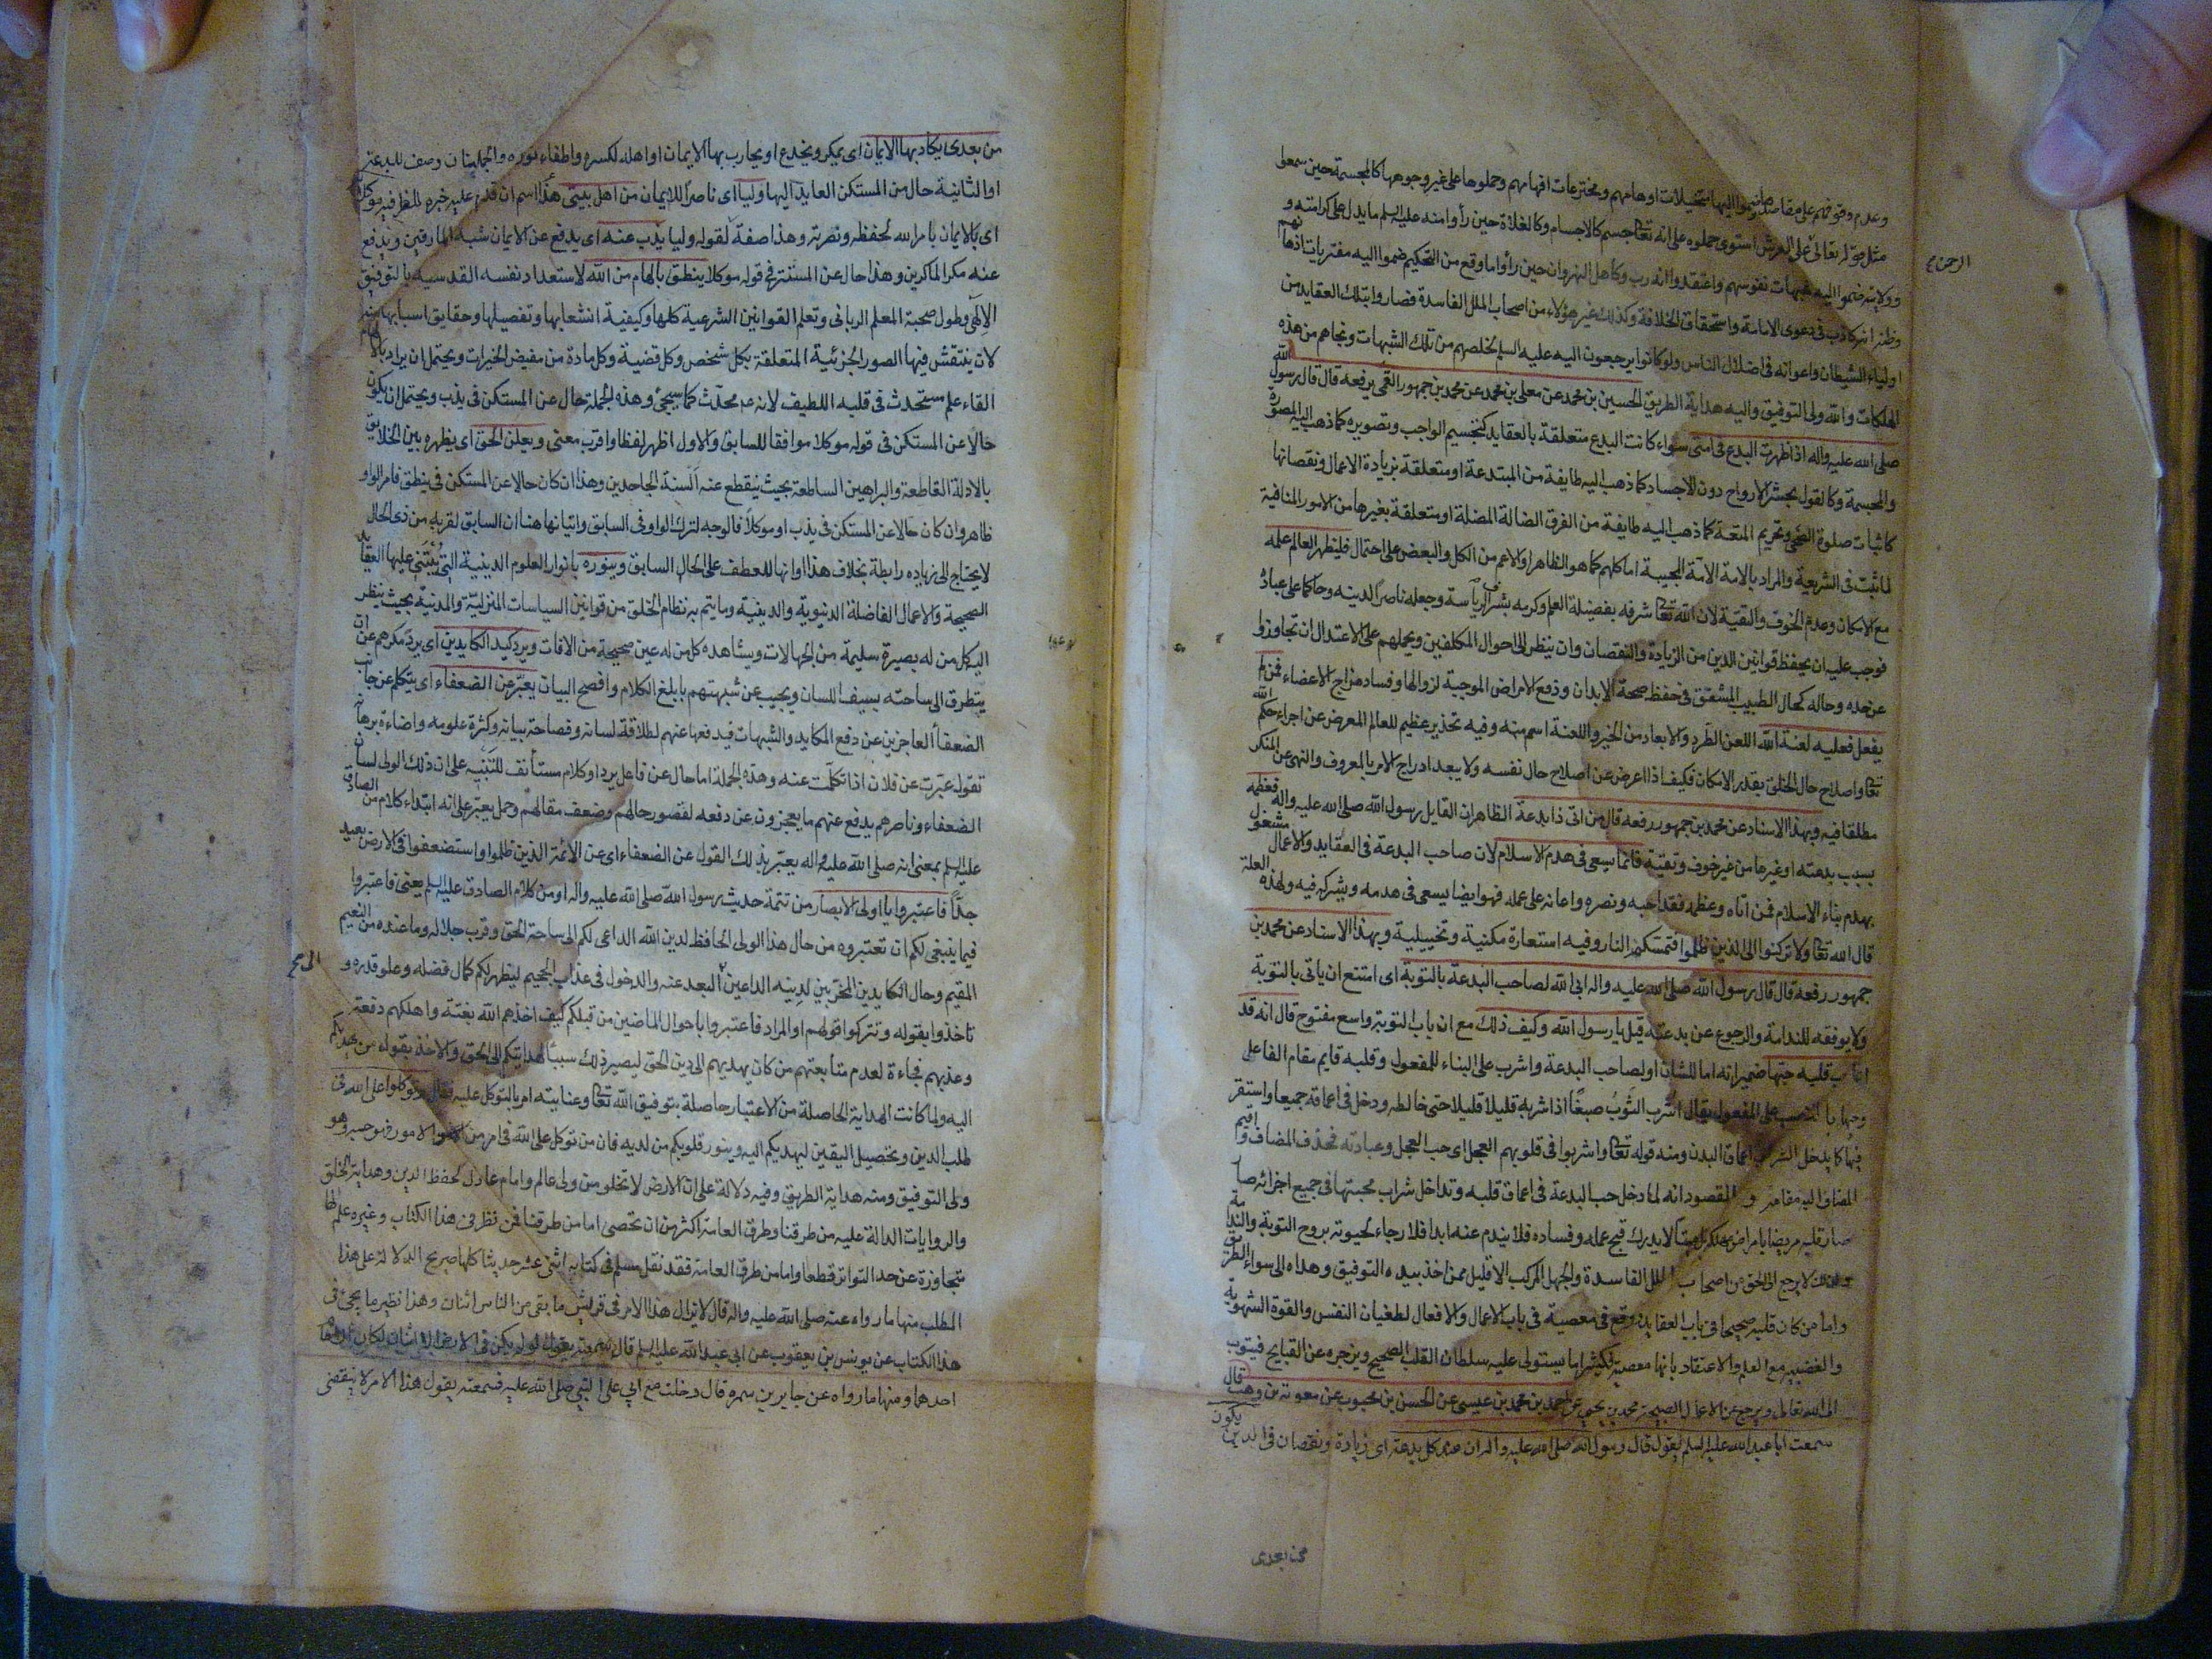 وعدم وقوفهم على مقاصدها ضموا اليها متخيلات اوهامهم ومخترعات افهامهم وحملوها على غير وجوهها كالمجسمة حين سمعوا
مثل قوله تعالى على العرش استوى حملوه على انه تعا جسم كالاجسام وكالغلاة حين رأوا منه عليه السلم ما يدل على كرامته و
الرحمن
وولايته ضموا اليه شبهات نفوسهم واعتقدوا انه رب وكأهل النهروان حين رأوا ما وقع من التحكيم ضموا اليه مفتريات اذهانهم
وظنوا انه كاذب فى دعوى الامامة واستحقاق الخلافة وكذلك غير هؤلاء من اصحاب الملل الفاسدة فصاروا بتلك العقايد من
اولياء الشيطان واعوانه فى اضلال الناس ولو كانوا يرجعون اليه عليه السلم لخلصهم من تلك الشبهات ونجاهم من هذه
المهلكات والله ولى التوفيق واليه هداية الطريق الحسين بن محمد عن معلى بن محمد عن محمد بن جمهور القمى يرفعه قال قال رسول الله
صلى الله عليه واله اذا ظهرت البدع فى امتى سواء كانت البدع متعلقة بالعقايد كتجسيم الواجب وتصويره كما ذهب اليه المصورة
والمجسمة وكالقول بحشر الارواح دون الاجساد كما ذهب اليه طايفة من المبتدعة او متعلقة بزيادة الاعمال ونقصانها
كاثبات صلوة الضحى وتحريم المتعة كما ذهب اليه طايفة من الفرق الضالة المضلة او متعلقة بغيرها من الامور المنافية
لما ثبت فى الشريعة والمراد بالامة الامة المجيبة اما كلهم كما هو الظاهر او الاعم من الكل والبعض على احتمال فليظهر العالم علمه
مع الامكان وعدم الخوف والتقية لان الله تعا شرفه بفضيلة العلم وكرمه بشرف الرياسة وجعله ناصرا لدينه وحاكما على عباده
فوجب عليه ان يحفظ قوانين الدين من الزيادة والنقصان وان ينظر الى احوال المكلفين ويحملهم على الاعتدال ان تجاوزوا
عن حده وحاله كحال الطبيب المشفق فى حفظ صحة الابدان ودفع الامراض الموجبة لزوالها وفساد مزاج الاعضاء فمن لم
يفعل فعليه لعنة الله اللعن الطرد والابعاد من الخير واللعنة اسم منه وفيه تحذير عظيم للعالم المعرض عن اجراء حكم الله
تعا واصلاح حال الخلق بقدر الامكان فكيف اذا اعرض عن اصلاح حال نفسه ولا يبعد ادراج الامر بالمعروف والنهى عن المنكر
مطلقا فيه وبهذا الاسناد عن محمد بن جمهور رفعه قال من اتى ذا بدعة الظاهر ان القايل رسول الله صلى الله عليه واله فعظمه
بسبب بدعته او غيرها من غير خوف وتقية فانما يسعى فى هدم الاسلام لان صاحب البدعة فى العقايد والاعمال مشغول
بهدم بناء الاسلام فمن اتاه وعظمه فقد احبه ونصره واعانه على عمله فهو ايضا يسعى فى هدمه ويشركه فيه ولهذه العلة
قال الله تعا ولا تركنوا الى الذين ظلموا فتمسكم النار وفيه استعارة مكنية وتخييلية وبهذا الاسناد عن محمد بن
جمهور رفعه قال قال رسول الله صلى الله عليه واله ابى الله لصاحب البدعة بالتوبة اى امتنع ان ياتى بالتوبة
ولا يوفقه للندامة والرجوع عن بدعته قيل يا رسول الله وكيف ذلك مع ان باب التوبة واسع مفتوح قال انه قد
اشرب قلبه حبها ضمير انه اما للشان او لصاحب البدعة واشرب على البناء للمفعول وقلبه قايم مقام الفاعل
وحبها بالنصب على المفعول يقال اشرب الثوب صبغا اذا شربه قليلا قليلا حتى خالطه ودخل فى اعماقه جميعا واستقر
فيها كما يدخل الشراب اعماق البدن ومنه قوله تعا واشربوا فى قلوبهم العجل اى حب العجل وعبادته فحذف المضاف واقيم
المضاف اليه مقامه والمقصود انه لما دخل حب البدعة فى اعماق قلبه وتداخل شراب محبتها فى جميع اجزائه
صار قلبه مريضا بامراض مهلكة لا يدرك قبح عمله وفساده فلا يندم عنه ابدا فلا رجاء لحيوته بروح التوبة والندامة
ولذلك لا يرجع الى الحق من اصحاب الملل الفاسدة والجهل المركب الا قليل ممن اخذ بيده التوفيق وهداه الى سواء الطريق
واما من كان قلبه صحيحا فى باب العقايد ووقع فى معصية فى باب الاعمال والافعال لطغيان النفس والقوة الشهوية
والغضبيه مع العلم والاعتقاد بانها معصية فكثيرا ما يستولى عليه سلطان القلب الصحيح ويزجره عن القبايح فيتوب
الى الله تعالى ويرجع عن الاعمال القبيحة محمد بن يحيى عن احمد بن محمد بن عيسى عن الحسن بن محبوب عن معوية بن وهب قال
سمعت ابا عبدالله عليه السلم يقول قال رسول الله صلى الله عليه واله ان عند كل بدعة اى زيادة ونقصان فى الدين يكون
من بعدى
من بعدى يكاد بها الايمان اى يمكر ويخدع او يحارب بها الايمان او اهله لكسره واطفاء نوره والجملتان وصف للبدعة
او الثانية حال من المستكن العايد اليها وليا اى ناصرا للايمان من اهل بيتى هذا اسم ان قدم عليه خبره للظرفيه موكلا
اى بالايمان بامر الله لحفظه ونصرته وهذا صفة لقوله وليا يذب عنه اى يدفع عن الايمان شبه المارقين ويدفع
عنه مكر الماكرين وهذا حال عن المستتر فى قوله موكلا ينطق بالهام من الله لاستعداد نفسه القدسيه بالتوفيق
الالهى وطول صحبة المعلم الربانى وتعلم القوانين الشرعية كلها وكيفية انشعابها وتفصيلها وحقايق اسبابها
لان ينتقش فيها الصور الجزئية المتعلقة بكل شخص وكل قضية وكل مادة من مفيض الخيرات ويحتمل ان يراد بالالهام
القاء علم مستحدث فى قلبه اللطيف لانه محدث كما سيجئ وهذه الجملة حال عن المستكن فى يذب ويحتمل ان يكون
حالا عن المستكن فى قوله موكلا موافقا للسابق والاول اظهر لفظا واقرب معنى ويعلن الحق اى يظهره بين الخلايق
بالادلة القاطعة والبراهين الساطعة بحيث ينقطع عنه السنة الجاحدين وهذا ان كان حالا عن المستكن فى ينطق فامر الواو
ظاهر وان كان حالا عن المستكن فى يذب او موكلا فالوجه لترك الواو فى السابق واتيانها هنا ان السابق لقربه من ذى الحال
لا يحتاج الى زياده رابطة بخلاف هذا او انها للعطف على الحال السابق وينوره بانوار العلوم الدينية التى يبتنى عليها العقايد
الصحيحة والاعمال الفاضلة الدنيوية والدينية وما يتم به نظام الخلق من قوانين السياسات المنزلية والمدنية بحيث ينظر
اليه كل من له بصيرة سليمة من الجهالات ويشاهده كل من له عين صحيحة من الافات ويرد كيد الكايدين اى يرد مكرهم عن ان
يتطرق الى ساحته بسيف اللسان ويجيب عن شبهتهم بابلغ الكلام وافصح البيان يعبر عن الضعفاء اى يتكلم عن جانب
الضعفأ العاجزين عن دفع المكايد والشبهات فيدفعها عنهم لطلاقة لسانه وفصاحة بيانه وكثرة علومه واضاءة برهانه
تقول عبرت عن فلان اذا تكلمت عنه وهذه الجملة اما حال عن فاعل يرد او كلام مستأنف للتنبيه على ان ذلك الولى لسان
الضعفاء وناصرهم يدفع عنهم ما يعجزون عن دفعه لقصور حالهم وضعف مقالهم وحمل يعبر على انه ابتداء كلام من الصادق
عليه السلم بمعنى انه صلى الله عليه واله يعبر بذلك القول عن الضعفاء اى عن الائمة الذين ظلموا واستضعفوا فى الارض بعيد
جدا فاعتبروا يا اولى الابصار من تتمة حديث رسول الله صلى الله عليه واله او من كلام الصادق عليه السلم يعنى فاعتبروا
فيما ينبغى لكم ان تعتبروه من حال هذا الولى الحافظ لدين الله الداعى لكم الى ساحة الحق وقرب جلاله وما عنده من النعيم
المقيم وحال الكايدين المخربين لدينه الداعين البعد عنه والدخول فى عذاب الجحيم ليظهر لكم كمال فضله وعلو قدره و
الى صح
تاخذوا بقوله وتتركوا قولهم او المراد فاعتبروا باحوال الماضين من قبلكم كيف اخذهم الله بغتة واهلكهم دفعة
وعذبهم فجاءة لعدم متابعتهم من كان يهديهم الى دين الحق ليصير ذلك سببا لهدايتكم الى الحق والاخذ بقول من يهديكم
اليه ولما كانت الهداية الحاصلة من الاعتبار حاصلة بتوفيق الله تعا وعنايته امر بالتوكل عليه فقال وتوكلوا على الله فى
طلب الدين وتحصيل اليقين ليهديكم اليه وينور قلوبكم من لديه فان من توكل على الله فى امر من الامور فهو حسبه وهو
ولى التوفيق ومنه هداية الطريق وفيه دلالة على ان الارض لا تخلو من ولى عالم وامام عادل لحفظ الدين وهداية الخلق
والروايات الدالة عليه من طرقنا وطرق العامة اكثر من ان تحصى اما من طرقنا فمن نظر فى هذا الكتاب وغيره علم انها
متجاوزة عن حد التواتر قطعا واما من طرق العامة فقد نقل مسلم فى كتابه اثنى عشر حديثا كلها صريح الدلالة على هذا
المطلب منها ما رواه عنه صلى الله عليه واله قال لا يزال هذا الامر فى قريش ما بقى من الناس اثنان وهذا نظير ما يجئ فى
هذا الكتاب عن يونس بن يعقوب عن ابى عبدالله عليه السلم قال سمعته يقول لو لم يكن فى الارض الا اثنان لكان الامام
احدهما ومنها ما رواه عن جابر بن سمرة قال دخلت مع ابى على النبى صلى الله عليه فسمعته يقول هذا الامر لا ينقضى